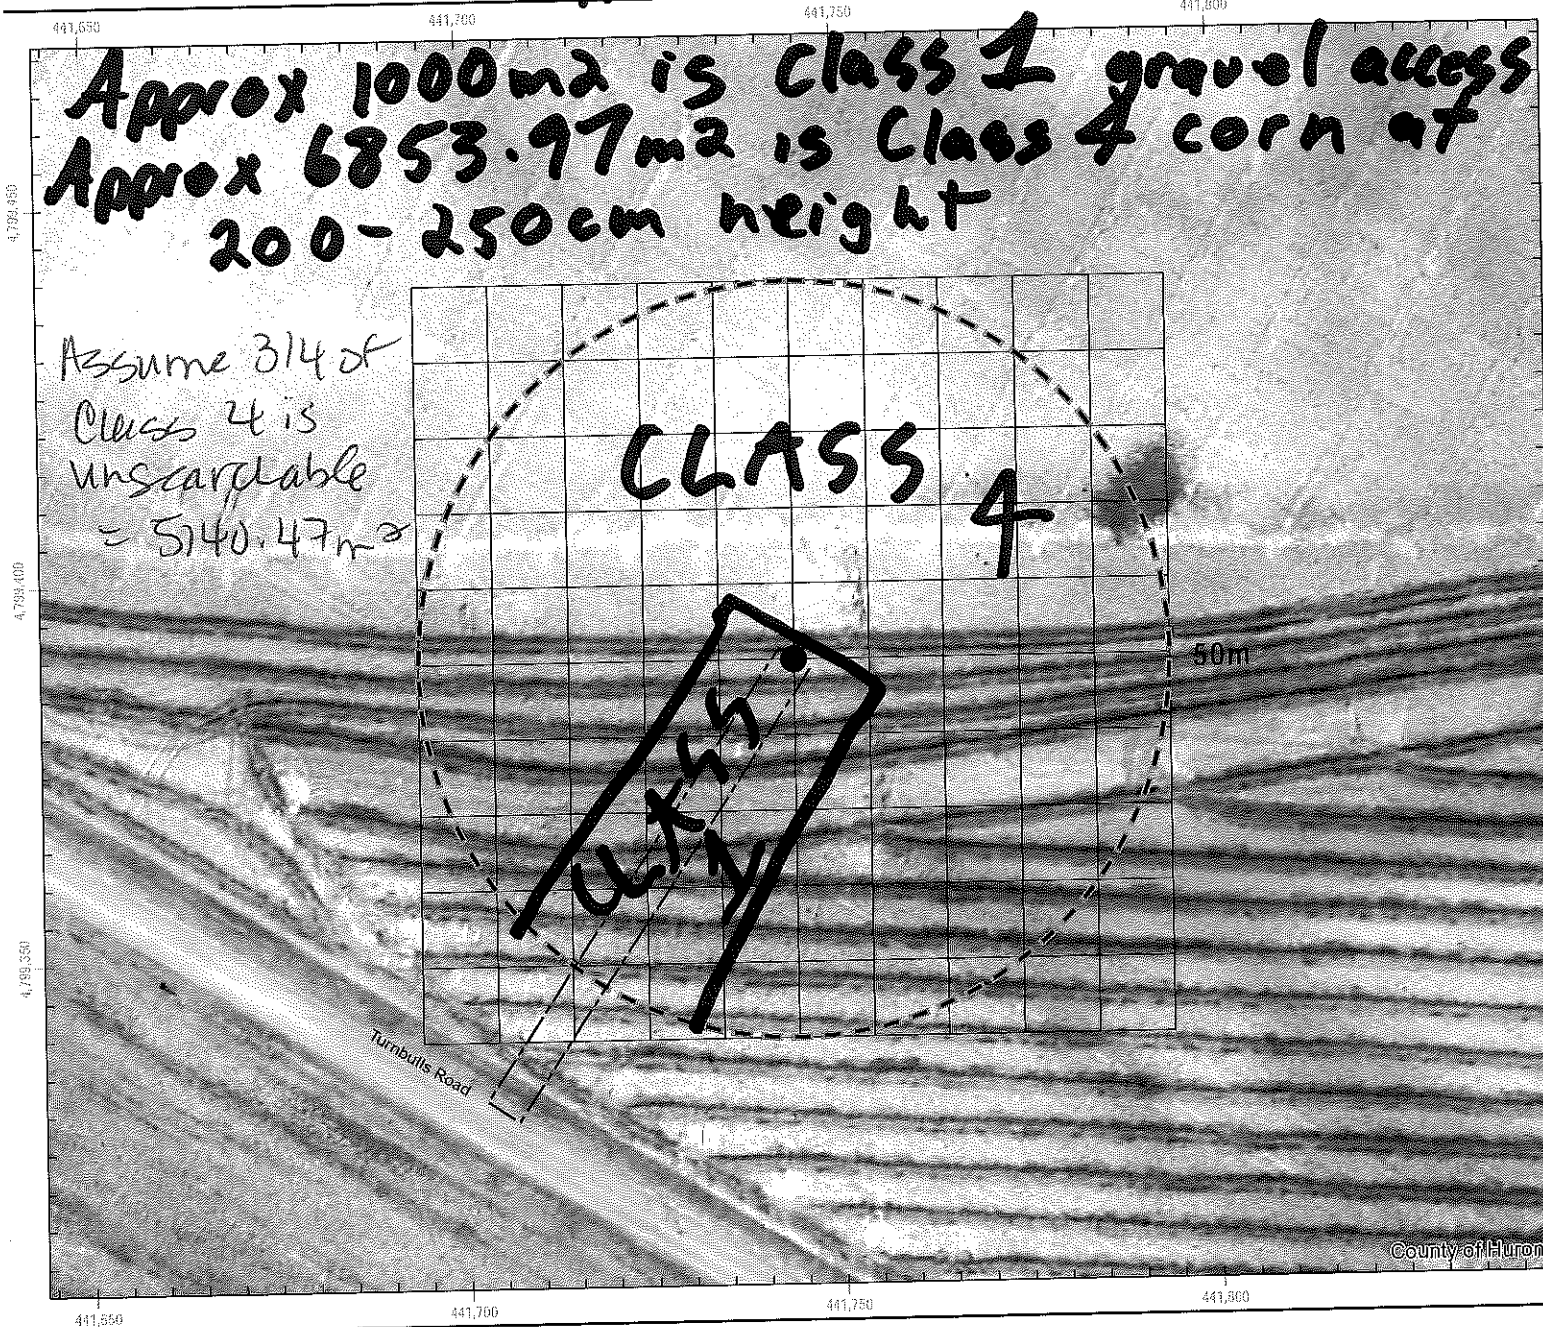 441,650 441,700 441,750 441,800
Approx 1000m2 is Class 1 gravel access
Approx 6853.97m2 is Class 4 corn at
200-250cm height
4,799,450
Assume 3/4 of
Class 4 is
unsearchable
= 5140.47m2
CLASS
4
4,799,400
50m
CLASS
1
4,799,350
Turnbulls Road
County of Huron
441,650 441,700 441,750 441,800